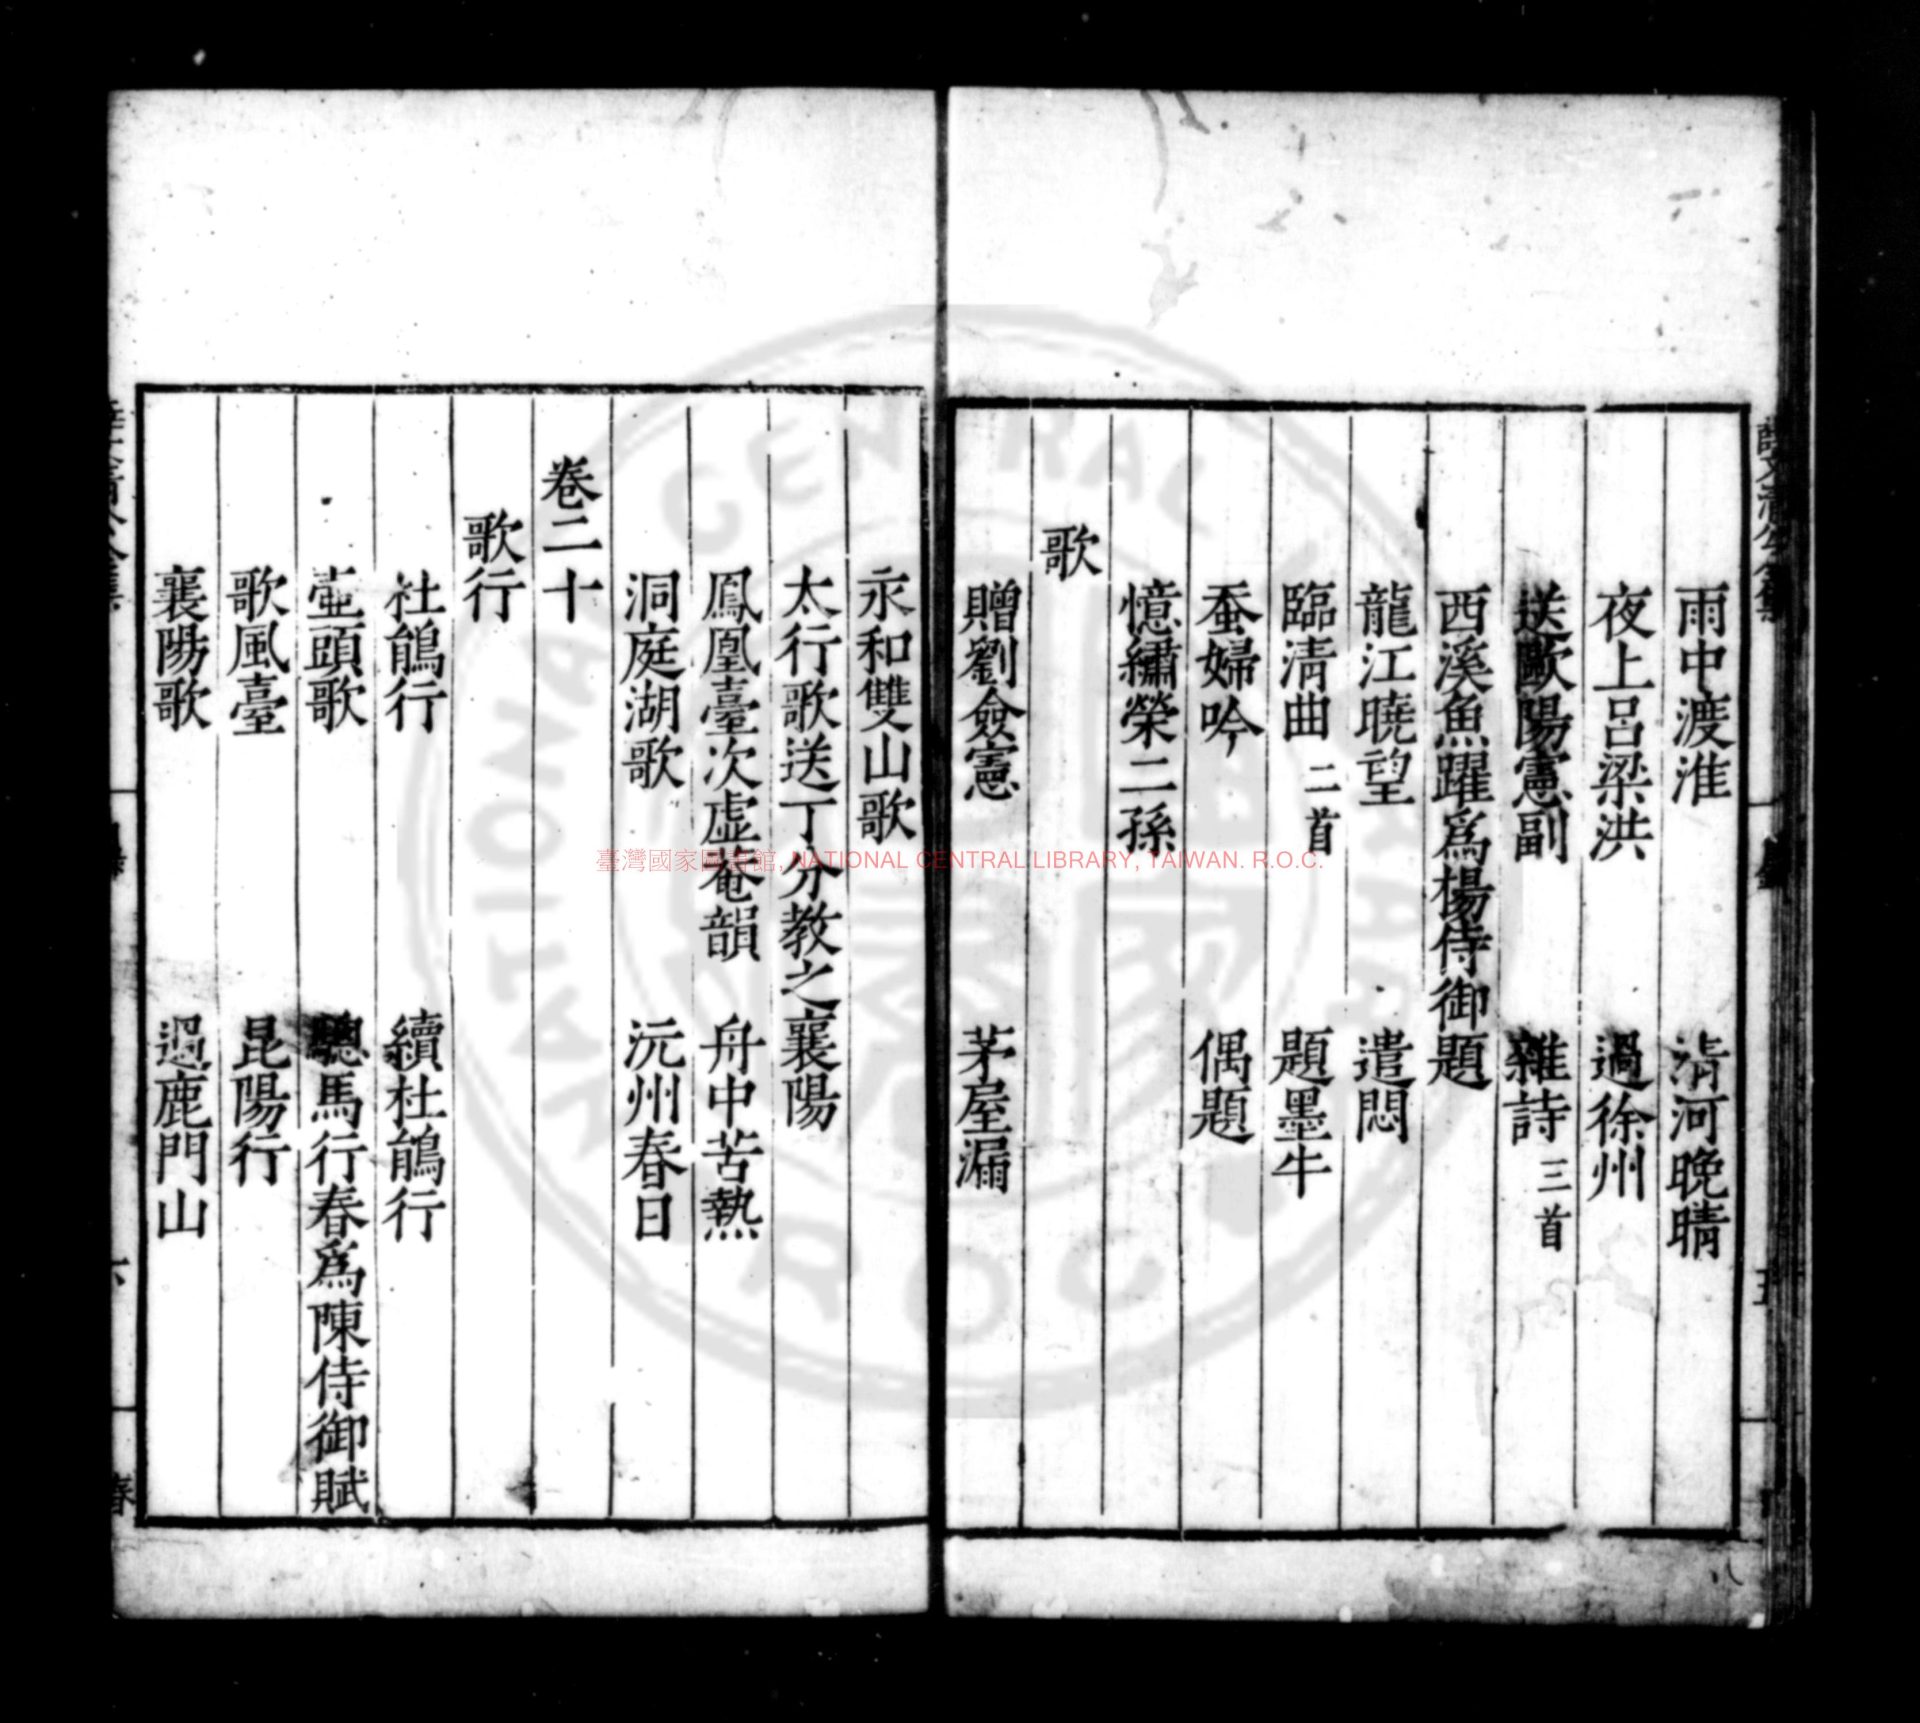 雨中渡淮　清河晚晴
夜上呂梁洪　過徐州
送歐陽憲副　雜詩三首
西溪魚躍爲楊侍御題
龍江曉望　遣悶
臨清曲二首　題墨牛
蚕婦吟　偶題
憶繡榮二孫
歌
贈劉僉憲　茅屋漏
永和雙山歌
太行歌送丁分教之襄陽
鳳凰臺次虛菴韻　舟中苦熱
洞庭湖歌　沅州春日
卷二十
歌行
杜鵑行　續杜鵑行
壺頭歌　驄馬行春爲陳侍御賦
歌風臺　昆陽行
襄陽歌　過鹿門山
臺灣國家圖書館, NATIONAL CENTRAL LIBRARY, TAIWAN. R.O.C.
NATIONAL CENTRAL LIBRARY
R.O.C.